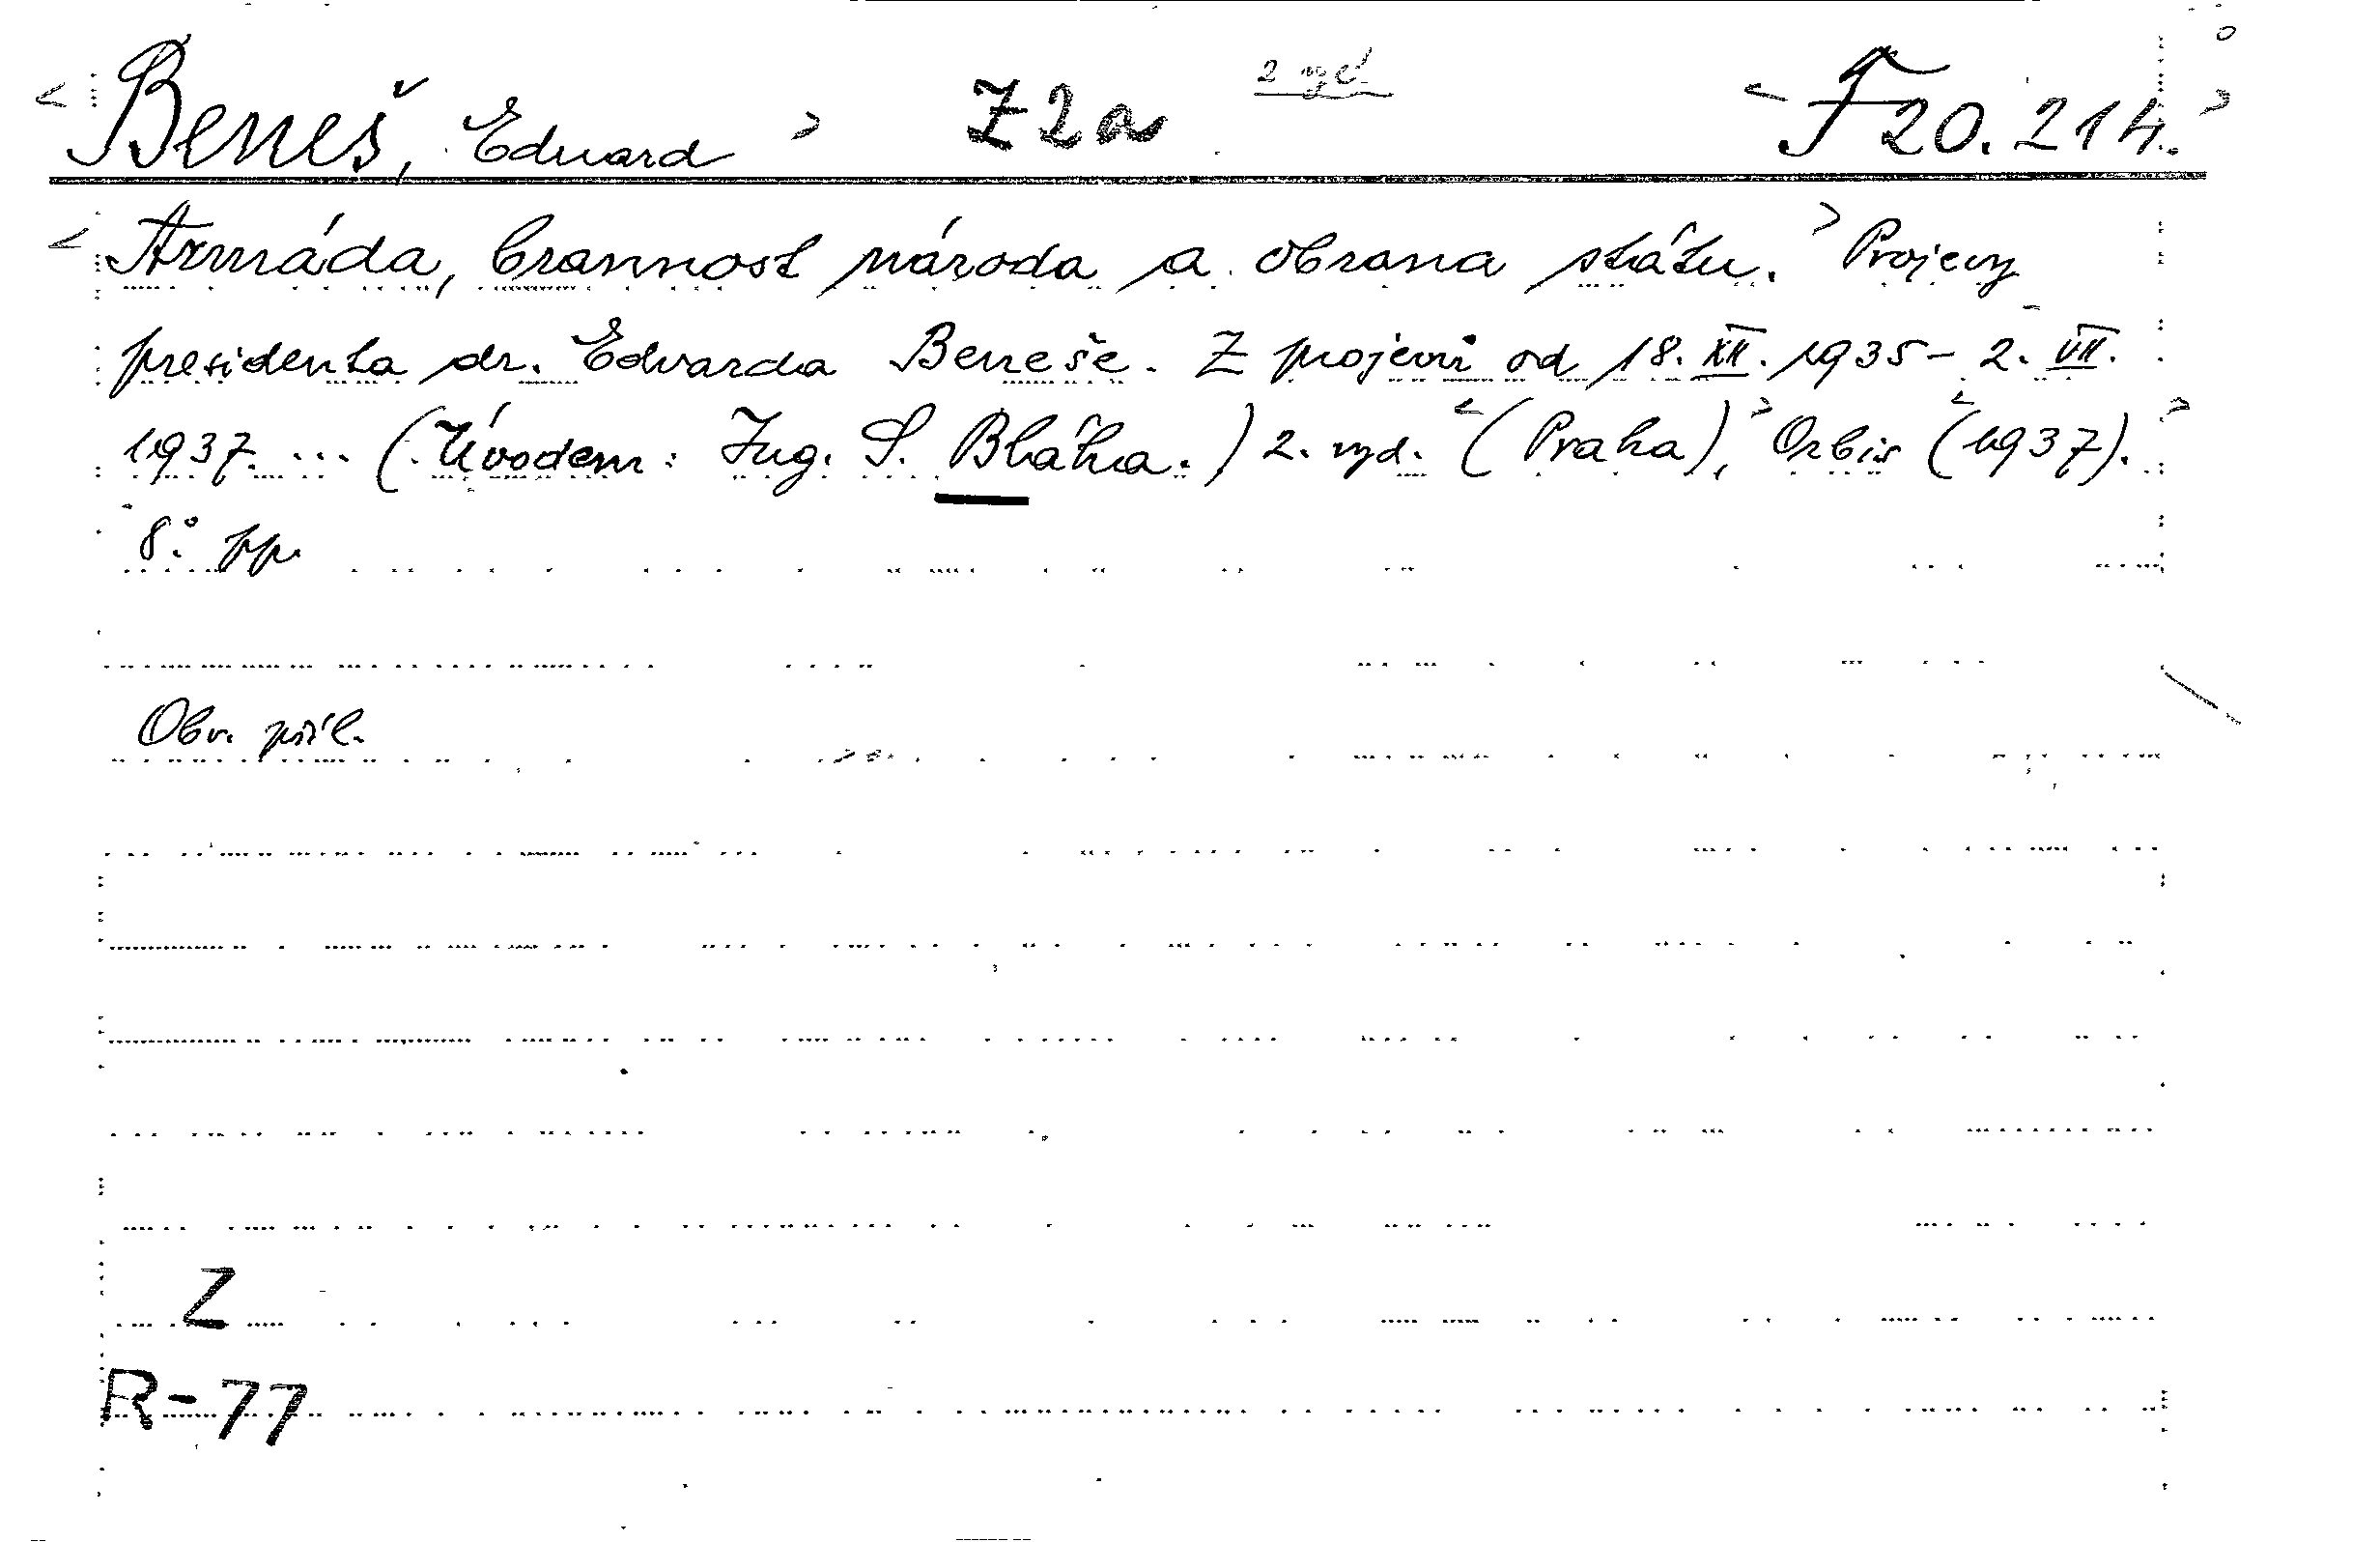 < Beneš, Eduard > Z2a < F 20.214. >
< Armáda, brannost národa a obrana státu. > Projevy
presidenta dr. Edvarda Beneše. Z projevů od 18. XII. 1935 - 2. VII.
1937. ... (Úvodem: Ing. S. Bláha.) 2. vyd. < (Praha), > Orbis < (1937). >
8°. pp.
Obr. příl.
Z
R-77